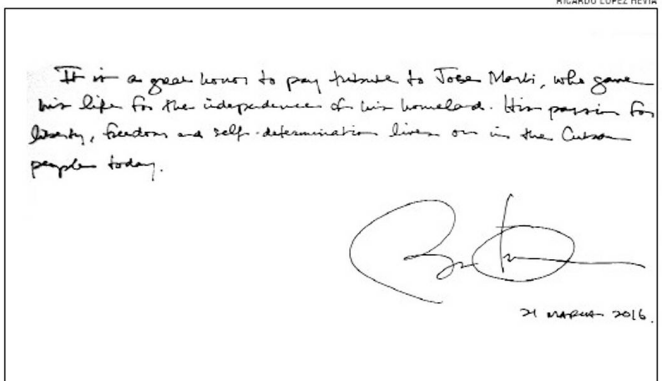 RICARDO LÓPEZ HEVIA
It is a great honor to pay tribute to Jose Marti, who gave
his life for the independence of his homeland. His passion for
liberty, freedom and self-determination lives on in the Cuban
people today.
21 MARCH 2016.